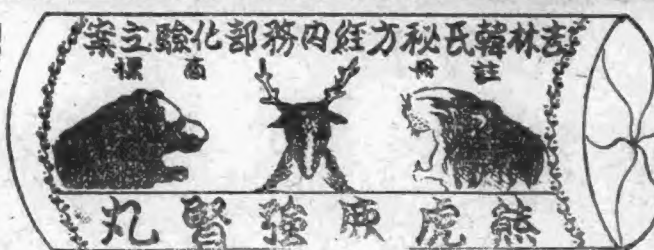 吉林韓氏秘方經内務部化驗立案
註冊商標
熊虎鹿強腎丸